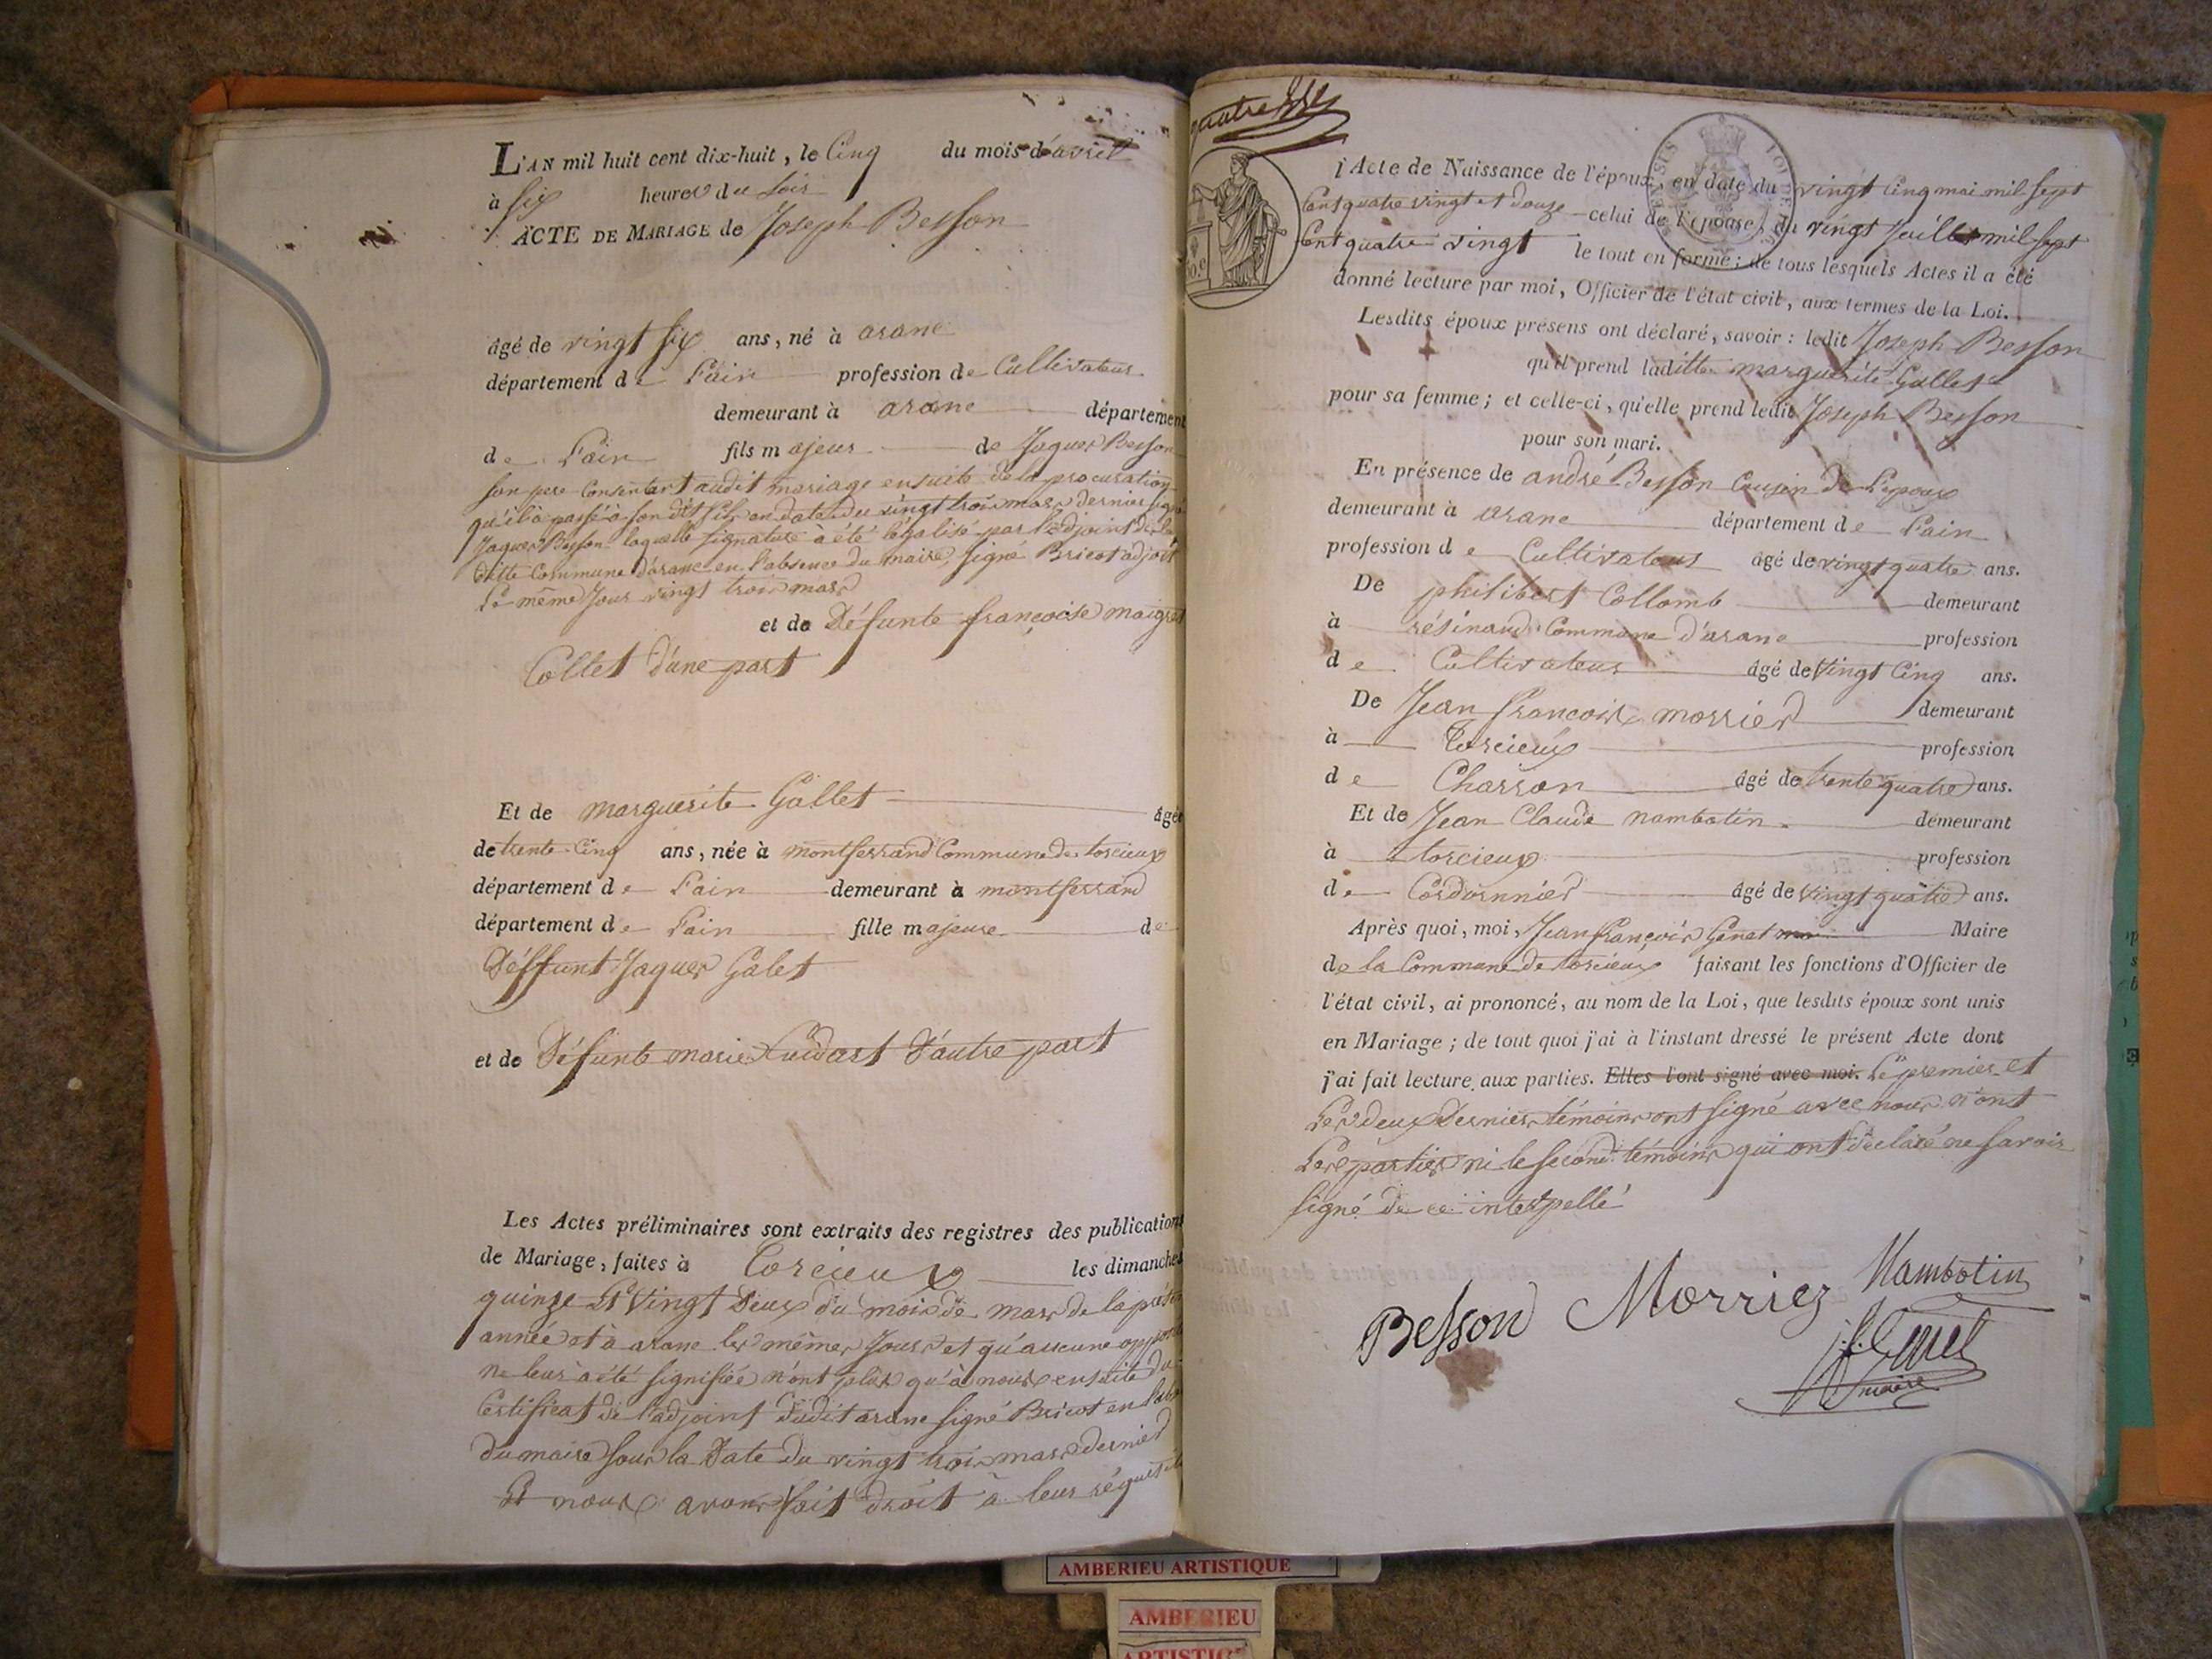 L'AN mil huit cent dix-huit, le Cinq du mois d'avril
à six heures du soir
ACTE DE MARIAGE de Joseph Besson
âgé de vingt six ans, né à arane
département de l'ain profession de Cultivateur
demeurant à arane département
de l'ain fils majeur de Jaques Besson
son pere Consentant audit mariage ensuite de la procuration
qu'il à passé à son dit fils en date du vingt trois mars dernier signé
Jaques Besson laquelle signature à été légalisé par l'adjoint de la
ditte Commune d'arane en l'absence du maire, signé Bricot adjoit
le même Jour vingt trois mars
et de Défunte françoise maigret
Collet d'une part
Et de marguerite Gallet âgée
de trente Cinq ans, née à montferrand Commune de torcieux
département de l'ain demeurant à montferrand
département de l'ain fille majeure de
Déffunt Jaques Galet
et de Défunte marie d'autre part
Les Actes préliminaires sont extraits des registres des publications
de Mariage, faites à Torcieux les dimanches
quinze Et Vingt Deux du mois de mars de la
année et à arane les mêmes Jours et qu'aucune
ne leur à été signifiée n'ont plus qu'à nous ensuite du
Certificat de l'adjoint dudit arane signé Bricot en
du maire sous la Date du vingt trois mars dernier
Et nous avons fait droit à leur
l'Acte de Naissance de l'époux, en date du vingt Cinq mai mil sept
Cent quatre vingt et douze celui de l'épouse, du vingt Juillet mil sept
Cent quatre vingt le tout en forme; de tous lesquels Actes il a été
donné lecture par moi, Officier de l'état civil, aux termes de la Loi.
Lesdits époux présens ont déclaré, savoir: ledit Joseph Besson
qu'il prend laditte marguerite Gallet
pour sa femme; et celle-ci, qu'elle prend ledit Joseph Besson
pour son mari.
En présence de andré Besson Cousin de l'epoux
demeurant à arane département de l'ain
profession de Cultivateur âgé de vingt quatre ans.
De philibert Collomb demeurant
à résinand Commune d'arane profession
de Cultivateur âgé de vingt Cinq ans.
De Jean françois morrier demeurant
à Torcieux profession
de Charron âgé de trente quatre ans.
Et de Jean Claude nambotin demeurant
à torcieux profession
de Cordonnier âgé de vingt quatre ans.
Après quoi, moi, Jean françois Genet Maire
de la Commune de torcieux faisant les fonctions d'Officier de
l'état civil, ai prononcé, au nom de la Loi, que lesdits époux sont unis
en Mariage; de tout quoi j'ai à l'instant dressé le présent Acte dont
j'ai fait lecture aux parties. Elles l'ont signé avec moi. Le premier et
les deux derniers témoins ont signé avec nous n'ont
les parties ni le second témoins qui ont déclaré ne savoir
signé de ce interpellé
Besson Morriez Nambotin
maire
AMBERIEU ARTISTIQUE
AMBERIEU
ARTISTIQ